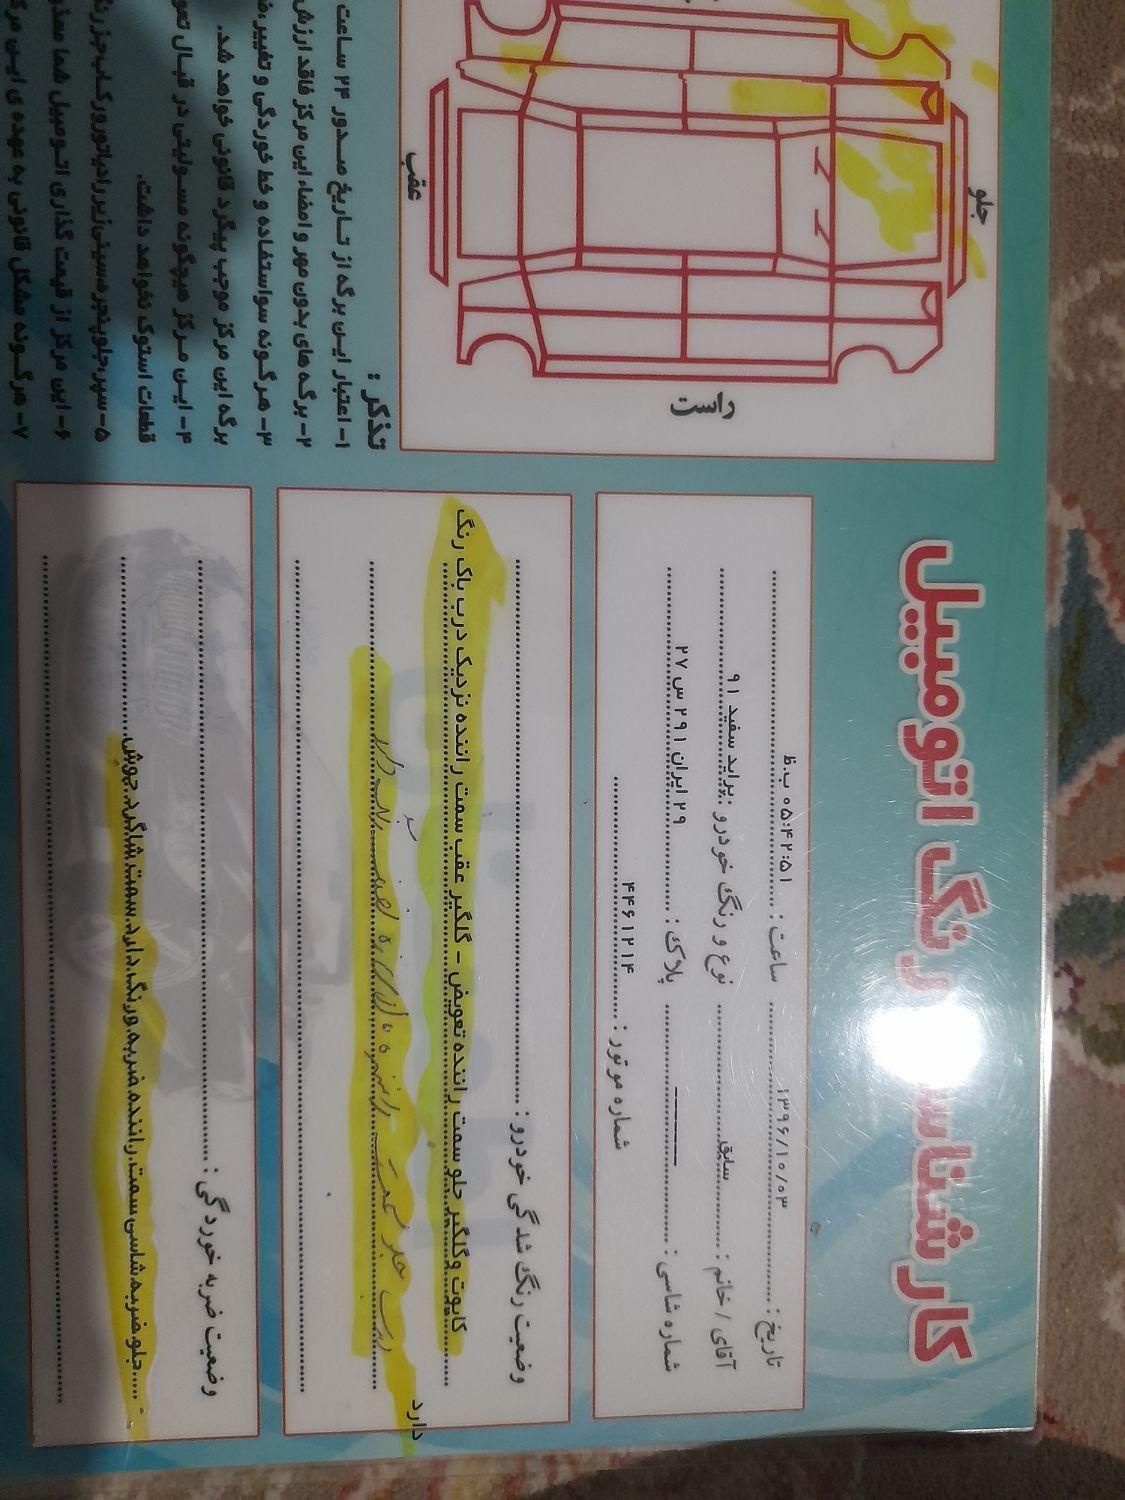 کارشناسی رنگ اتومبیل
تاریخ : ۱۳۹۶/۱۰/۰۳ ساعت : ۰۵:۴۲:۵۱ ب.ظ
آقای / خانم : سابق نوع و رنگ خودرو : پراید سفید ۹۱
شماره شاسی : ---------- پلاک : ۲۹ ایران ۲۹۱ س ۲۷
شماره موتور : ۴۴۶۱۲۱۴
وضعیت رنگ شدگی خودرو :
کاپوت و گلگیر جلو سمت راننده تعویض - گلگیر عقب سمت راننده نزدیک درب باک رنگ
دارد
درب جلو سمت راننده
وضعیت ضربه خوردگی :
جلو ضربه شاسی سمت راننده ضربه و رنگ دارد سمت شاگرد جوش
جلو
عقب
راست
تذکر :
۱- اعتبار این برگه از تاریخ صدور ۲۴ ساعت
۲- برگه های بدون مهر و امضاء این مرکز فاقد ارزش
۳- هرگونه سواستفاده و خط خوردگی و تغییر
برگه این مرکز موجب پیگرد قانونی خواهد شد.
۴- این مرکز هیچگونه مسولیتی در قبال
قطعات استوک نخواهد داشت.
۵- سپر،جلوپنجره،سینی زیر رادیاتور و رکاب جز
۶- این مرکز از قیمت گذاری اتومبیل شما
۷- هرگونه مشکل قانونی به عهده ی این